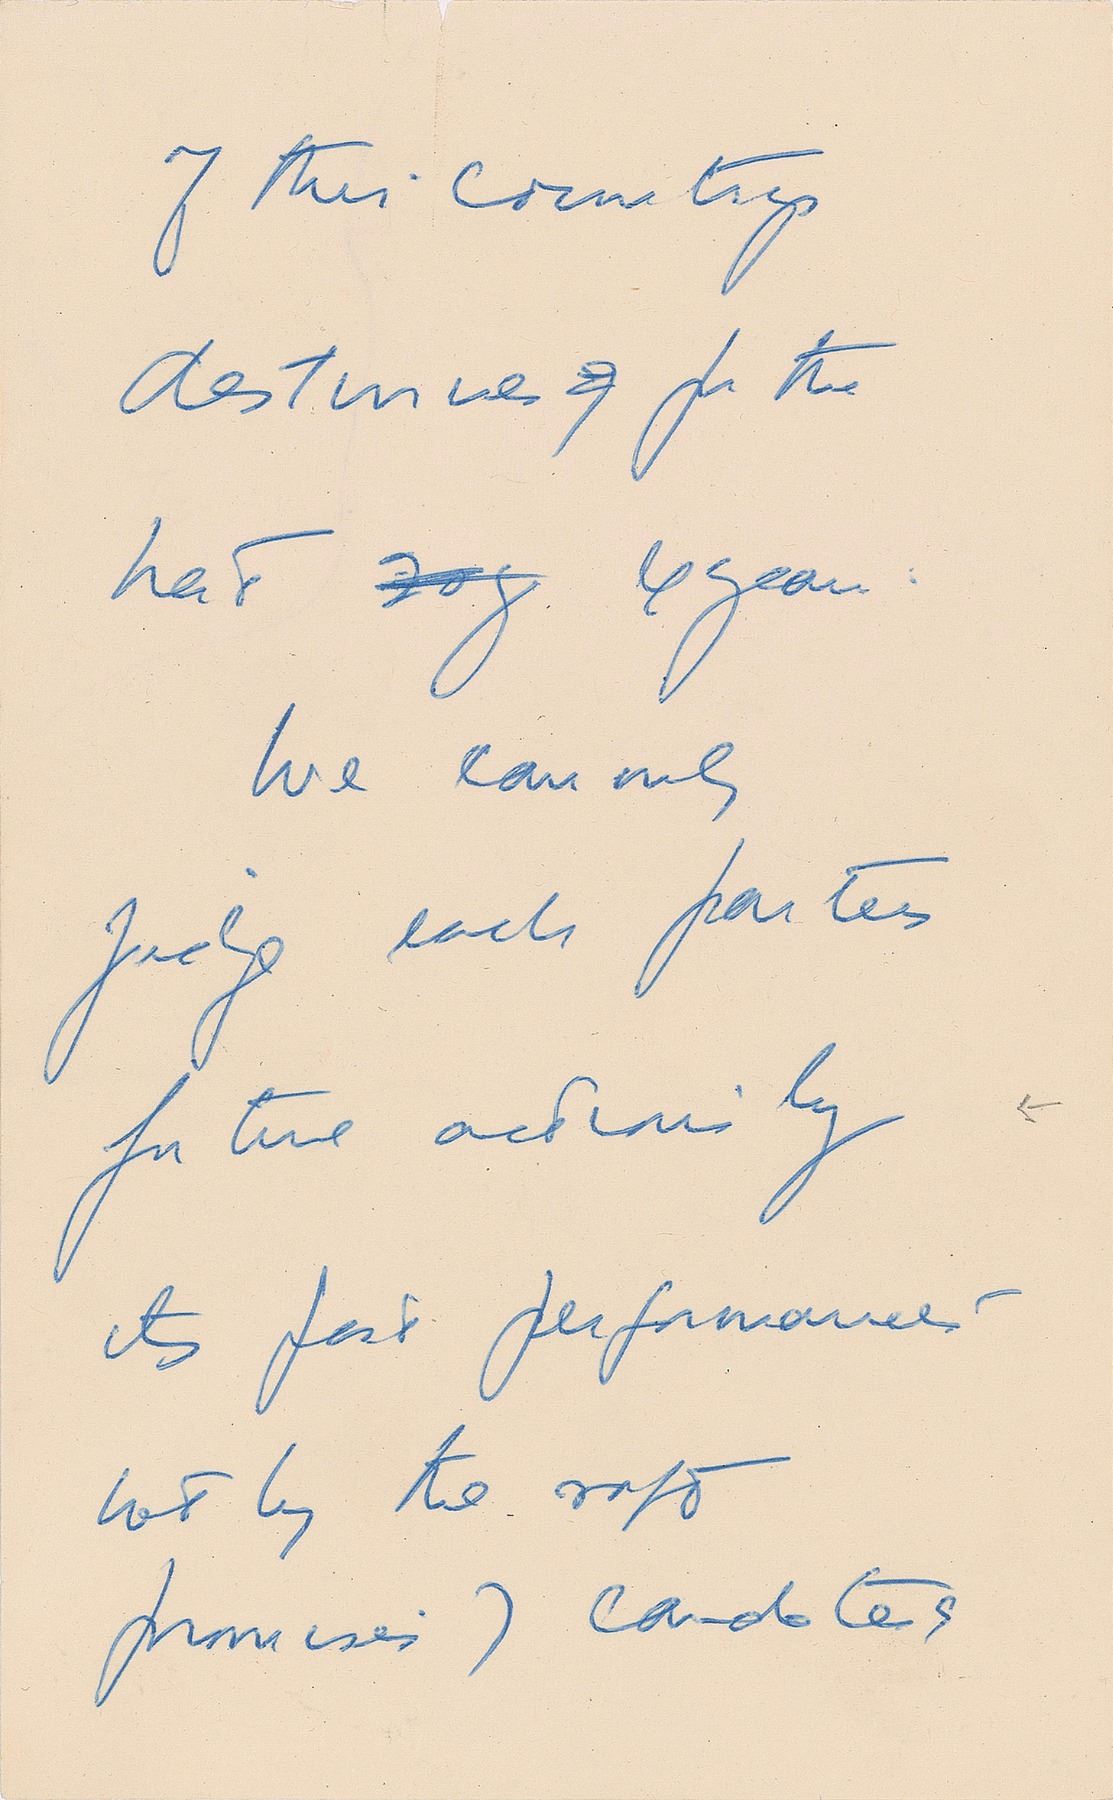 of this country
destinies for the
next 4 years.
We can only
judge each parties
future actions by
its past performances
not by the soft
promises of candates